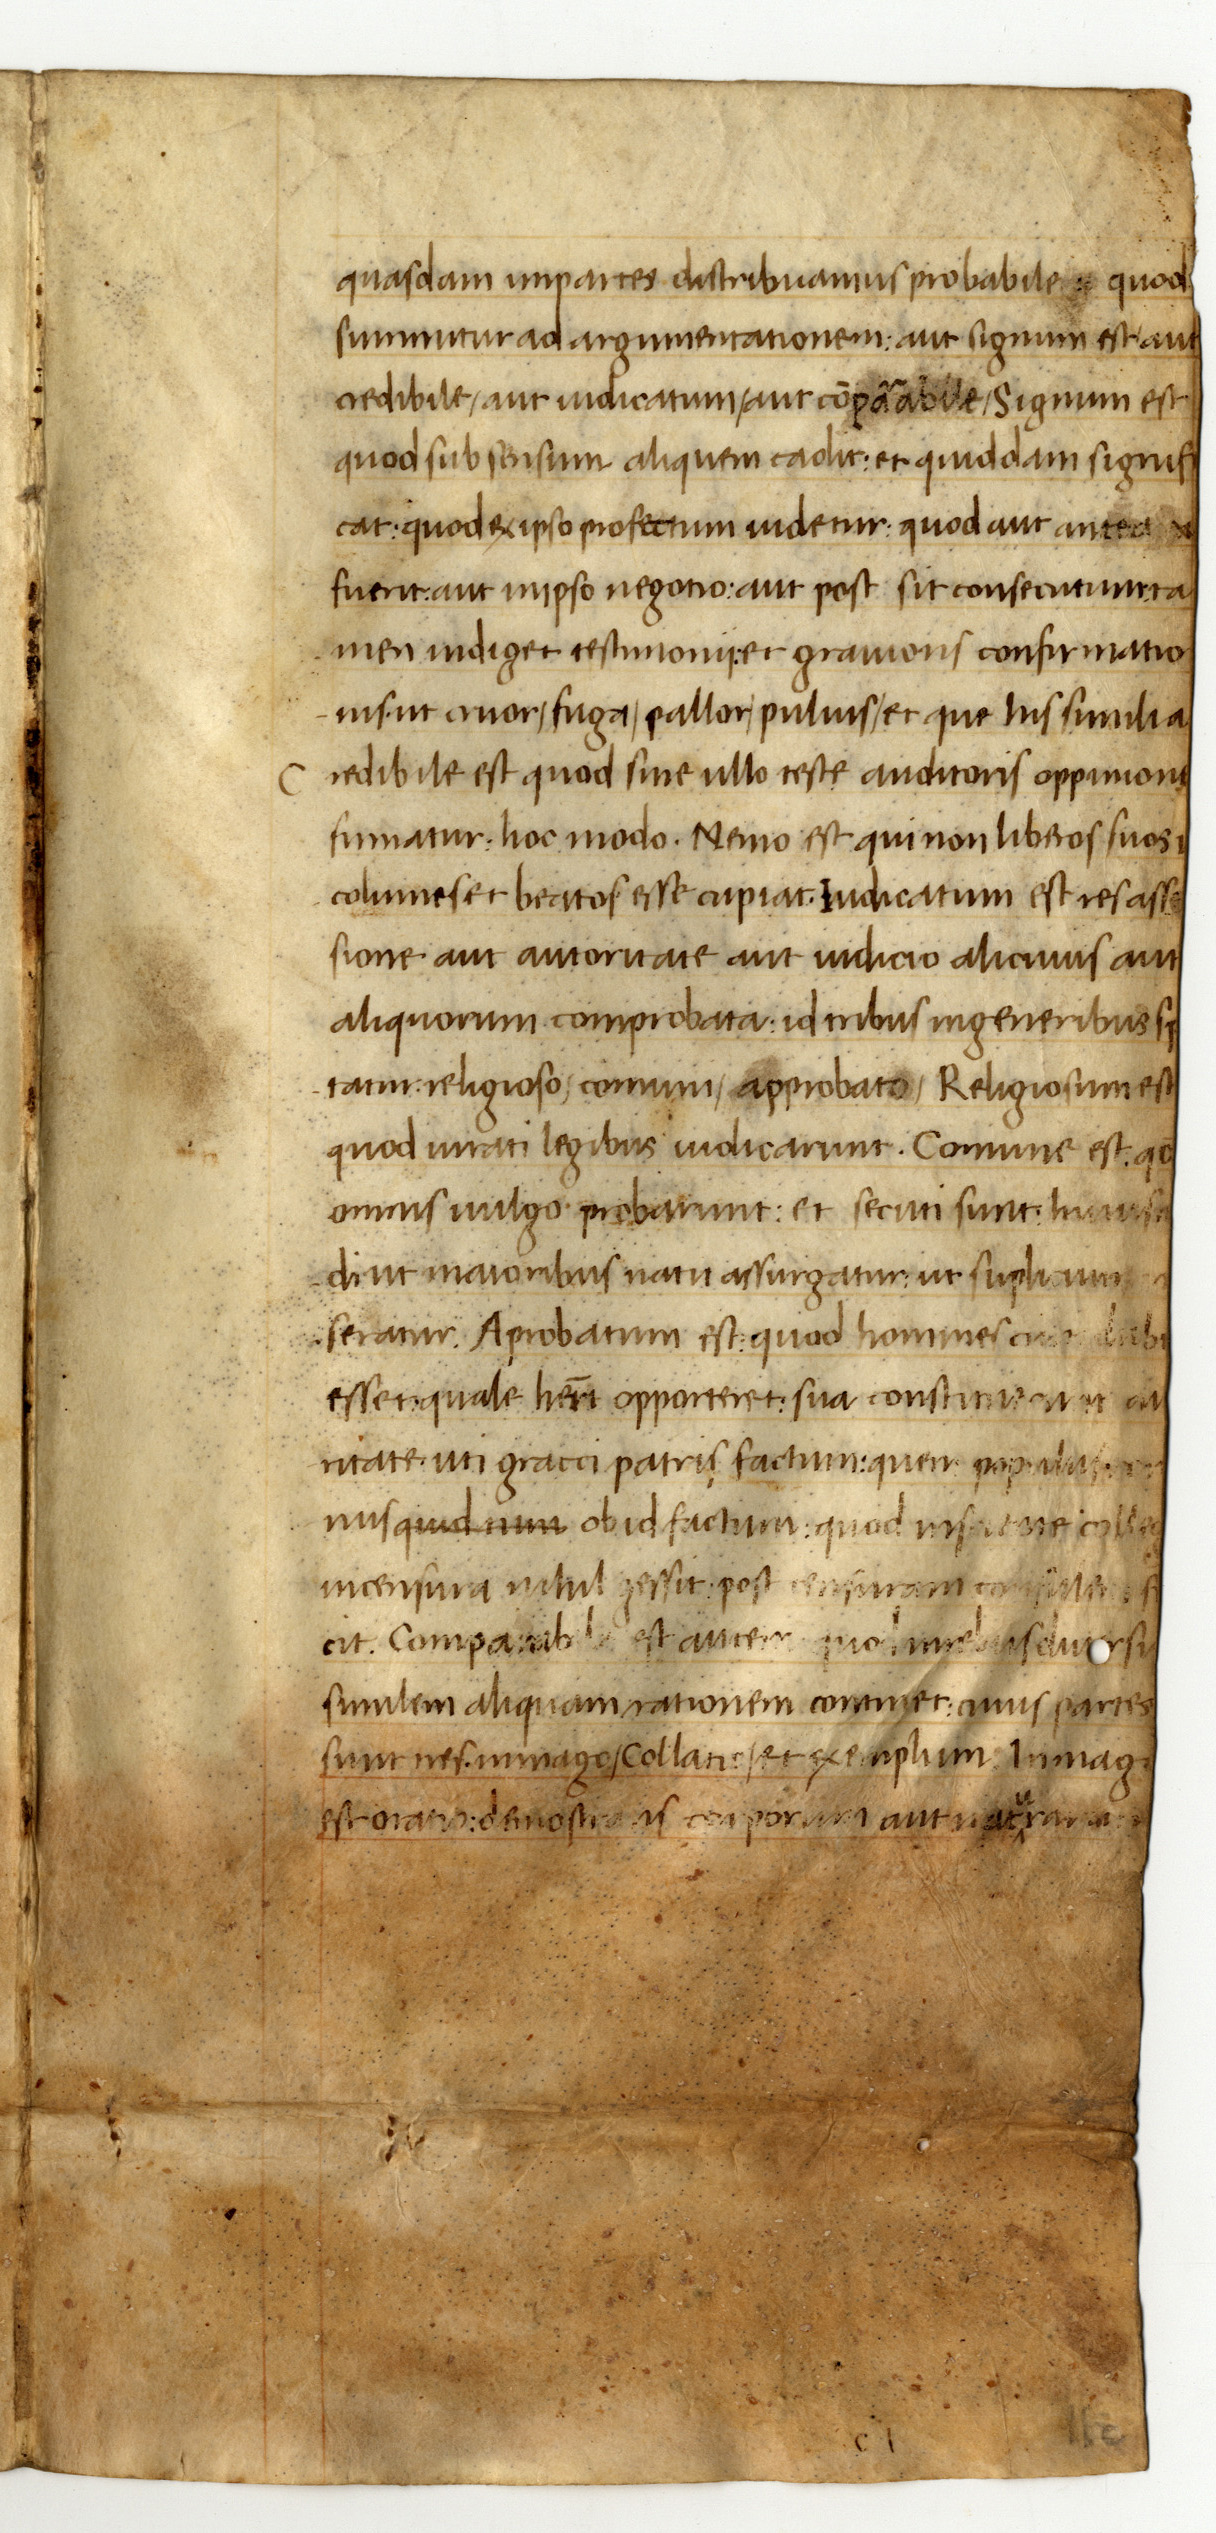 quasdam inpartes distribuamus probabile quod
summitur ad argumentationem: aut signum est/aut
credibile/aut iudicatum/aut cōparabile/Signum est
quod sub sensum aliquem cadit: et quiddam signifi
cat: quod ex ipso profectum uidetur: quod aut antea
fuerit: aut inipso negotio: aut post sit consecutum: ta
men indiget testimonii: et grauioris confirmatio
nis. ut cruor/fuga/pallor/puluis/et que his similia
C redibile est quod sine ullo teste auditoris oppinioni
firmatur: hoc modo. Nemo est qui non liberos suos i
columes et beatos esse cupiat. Iudicatum est res asse
sione aut autoritate aut iudicio alicuius aut
aliquorum comprobata: id tribus ingeneribus sp
tatur: religioso/comuni/approbato/Religiosum est
quod iurati legibus iudicarunt. Comune est: qd
omnis uulgo probarunt: et secuti sunt: huius
di ut maioribus natu assurgatur: ut suplicum
seratur. Aprobatum est: quod homines cum dubi
esset: quale heri opporteret: sua constituerunt au
ritate. uti gracci patris factum: quem populus
nus quid num ob id factum: quod insciente colleg
incensura nihil gessit: post censuram consulem f
cit. Comparabile est autem quod inrebus diuersi
similem aliquam rationem continet: cuius partes
sunt nes. inmago/Collatio/et exemplum. Inmag
est oratio: demostrans corporum aut naturarum
c 1